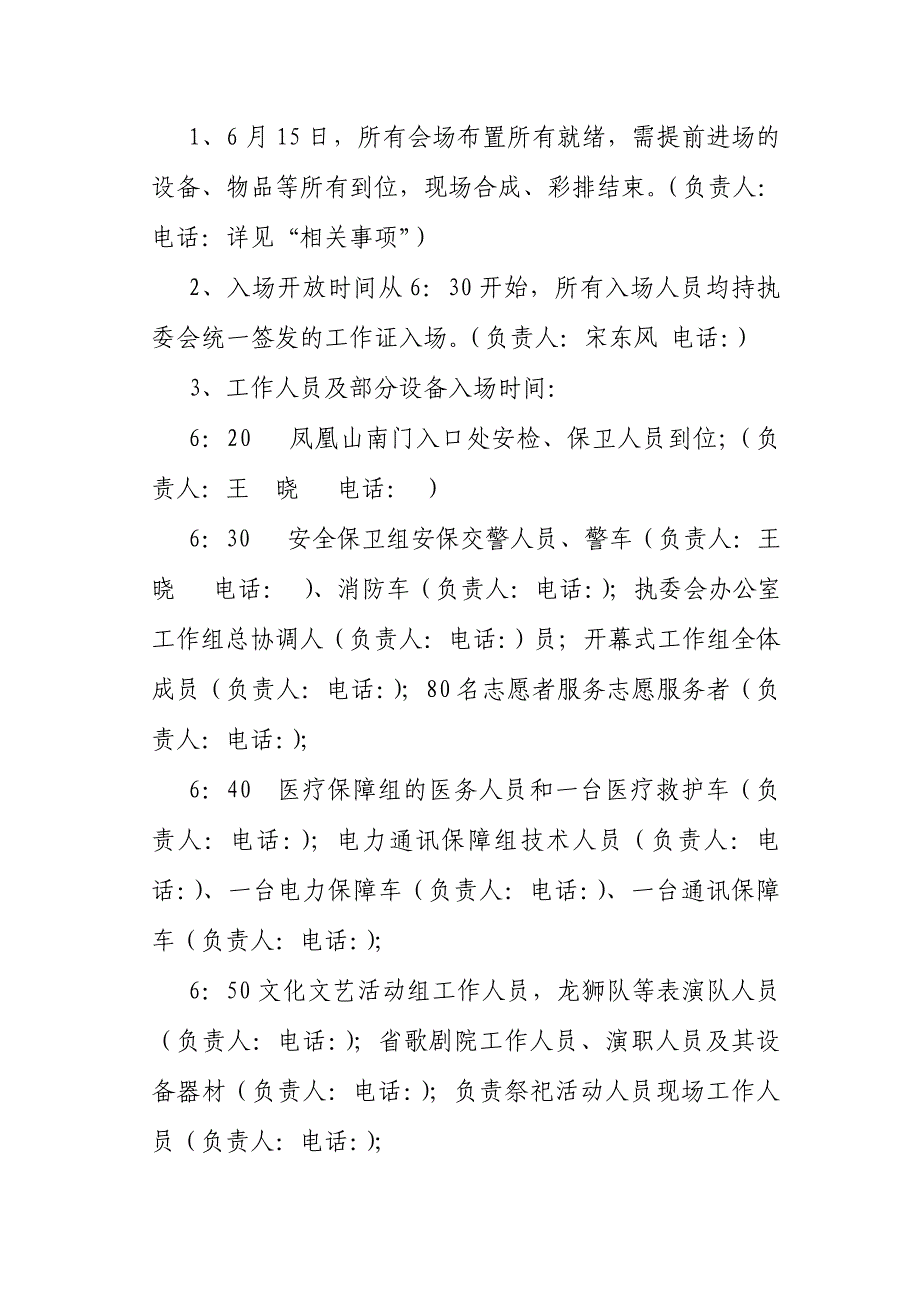 1、6月15日，所有会场布置所有就绪，需提前进场的
设备、物品等所有到位，现场合成、彩排结束。（负责人：
电话：详见“相关事项”）
2、入场开放时间从6：30开始，所有入场人员均持执
委会统一签发的工作证入场。（负责人：宋东风 电话：）
3、工作人员及部分设备入场时间：
6：20   凤凰山南门入口处安检、保卫人员到位；（负
责人：王  晓   电话：  ）
6：30   安全保卫组安保交警人员、警车（负责人：王
晓   电话：  ）、消防车（负责人：电话：）；执委会办公室
工作组总协调人（负责人：电话：）员；开幕式工作组全体
成员（负责人：电话：）；80名志愿者服务志愿服务者（负
责人：电话：）；
6：40  医疗保障组的医务人员和一台医疗救护车（负
责人：电话：）；电力通讯保障组技术人员（负责人：电
话：）、一台电力保障车（负责人：电话：）、一台通讯保障
车（负责人：电话：）；
6：50文化文艺活动组工作人员，龙狮队等表演队人员
（负责人：电话：）；省歌剧院工作人员、演职人员及其设
备器材（负责人：电话：）；负责祭祀活动人员现场工作人
员（负责人：电话：）；